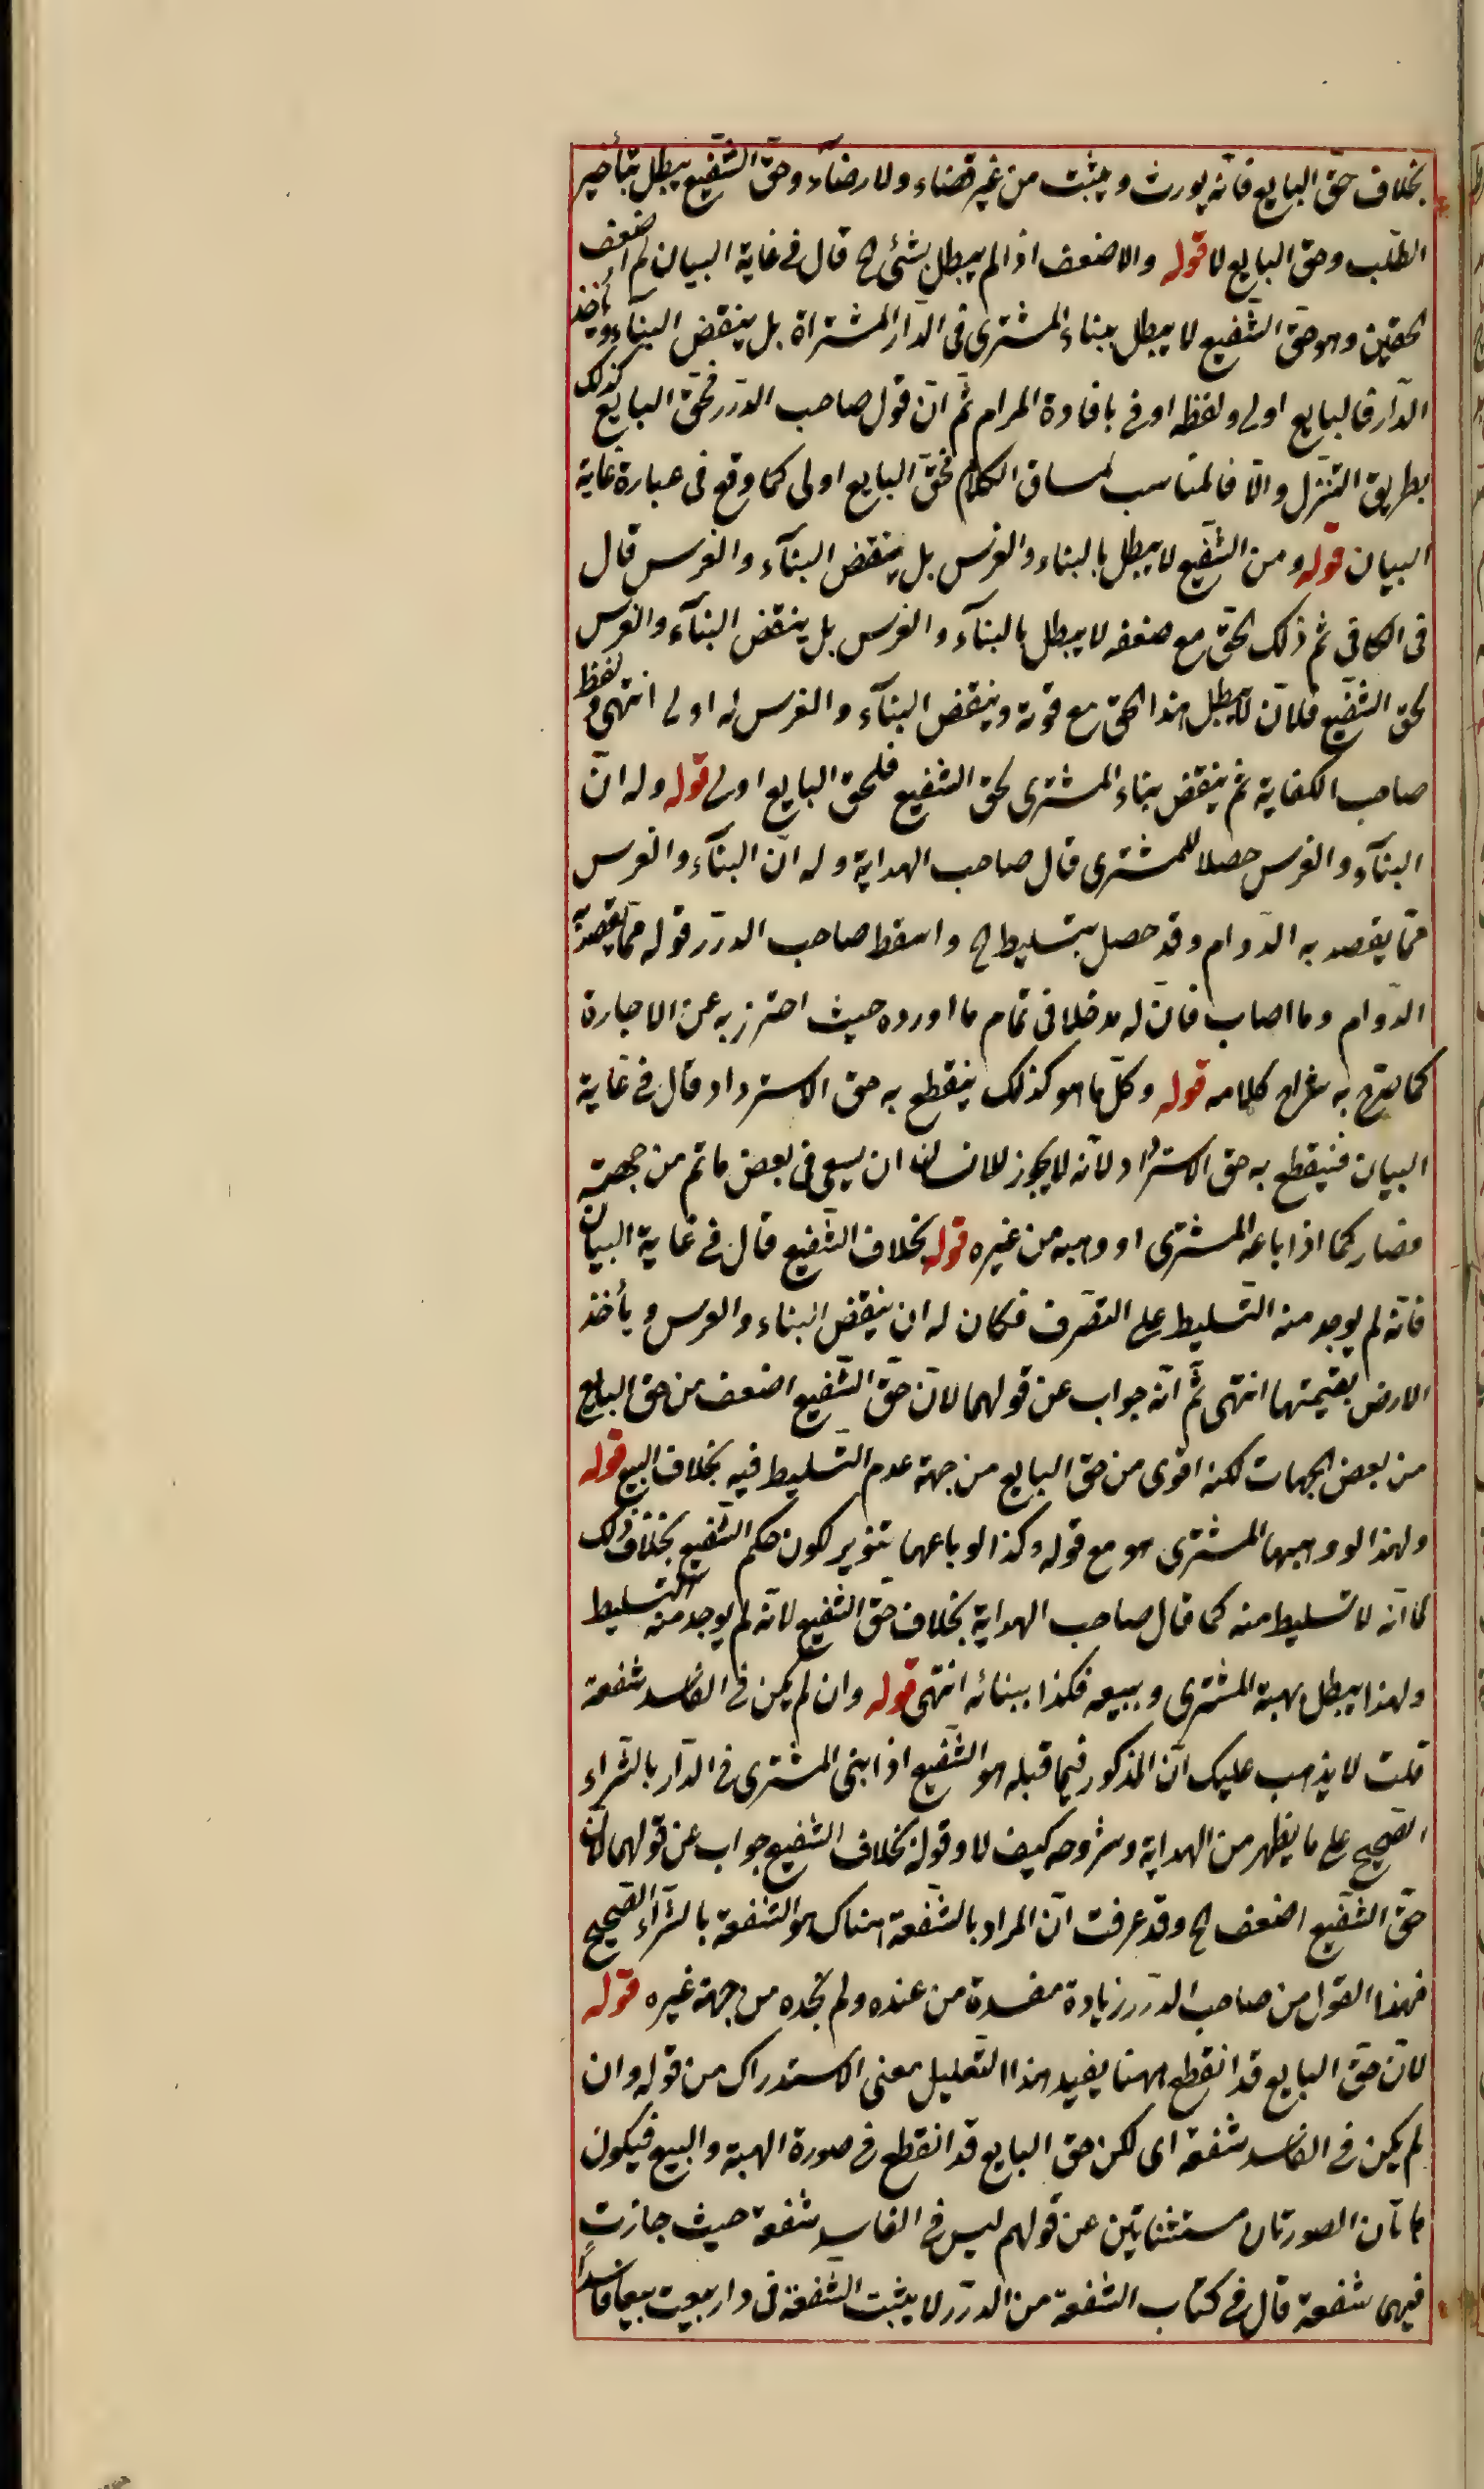 بخلاف حق البايع فانه يورث ويثبت من غير قضاء ولا رضاء وحق الشفيع يبطل بتأخير
الطلب وحق البايع لا قوله والاضعف اذا لم يبطل بشئ الخ قال في غاية البيان ثم اضعف
الحقين وهو حق الشفيع لا يبطل ببناء المشترى فى الدار المشتراة بل ينقض البناء ويأخذ
الدار فالبايع اولى ولفظه اوفى بافادة المرام ثم ان قول صاحب الدرر فحق البايع كذلك
بطريق التنزل والا فالمناسب لمساق الكلام فحق البايع اولى كما وقع فى عبارة غاية
البيان قوله ومن الشفيع لا يبطل بالبناء والغرس بل ينقض البناء والغرس قال
فى الكافى ثم ذلك الحق مع ضعفه لا يبطل بالبناء والغرس بل ينقض البناء والغرس
لحق الشفيع فلان لا يبطل هذا الحق مع قوته وينقض البناء والغرس له اولى انتهى ولفظ
صاحب الكفاية ثم ينقض بناء المشترى لحق الشفيع فلحق البايع اولى قوله وله ان
البناء والغرس حصلا للمشترى قال صاحب الهداية وله ان البناء والغرس
مما يقصد به الدوام وقد حصل بتسليط الخ واسقط صاحب الدرر قوله مما يقصد به
الدوام وما اصاب فان له مدخلا فى تمام ما اورده حيث احترز به عن الاجارة
كما صرح به شراح كلامه قوله وكل ما هو كذلك ينقطع به حق الاسترداد قال فى غاية
البيان فينقطع به حق الاسترداد لانه لا يجوز للانسان ان يسعى فى بعض ما تم من جهته
فصار كما اذا باعه المشترى او وهبه من غيره قوله بخلاف الشفيع قال فى غاية البيان
فانه لم يوجد منه التسليط على التصرف فكان له ان ينقض البناء والغرس ويأخذ
الارض بقيمتها انتهى ثم انه جواب عن قولهما لان حق الشفيع اضعف من حق البايع
من بعض الجهات لكنه اقوى من حق البايع من جهة عدم التسليط فيه بخلاف البيع قوله
ولهذا لو وهبها المشترى هو مع قوله وكذا لو باعهما تنوير لكون حكم الشفيع بخلاف ذلك
لما انه لا تسليط منه كما قال صاحب الهداية بخلاف حق الشفيع لانه لم يوجد منه التسليط
ولهذا يبطل بهبة المشترى وبيعه فكذا ببنائه انتهى قوله وان لم يكن فى الفاسد شفعة
قلت لا يذهب عليك ان المذكور فيما قبله هو الشفيع اذا بنى المشترى فى الدار بالشراء
الصحيح على ما يظهر من الهداية وشروحه كيف لا وقوله بخلاف الشفيع جواب عن قولهما لان
حق الشفيع اضعف الخ وقد عرفت ان المراد بالشفعة هناك هو الشفعة بالشراء الصحيح
فهذا القول من صاحب الدرر زيادة مفسدة من عنده ولم نجده من جهة غيره قوله
لان حق البايع قد انقطع ههنا يفيد هذا التعليل معنى الاستدراك من قوله وان
لم يكن فى الفاسد شفعة اى لكن حق البايع قد انقطع فى صورة الهبة والبيع فيكون
هاتان الصورتان مستثناتين عن قولهم ليس فى الفاسد شفعة حيث جازت
فيهما شفعة قال فى كتاب الشفعة من الدرر لا يثبت الشفعة فى دار بيعت بيعا فاسدا